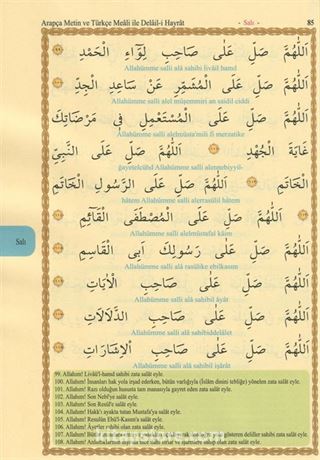 Arapça Metin ve Türkçe Meâli ile Delâil-i Hayrât - Salı - 85
اَللّٰهُمَّ صَلِّ عَلٰى صَاحِبِ لِوَٓاءِ الْحَمْدِ
Allahümme salli alâ sahibi livâil hamd
اَللّٰهُمَّ صَلِّ عَلَى الْمُشَمِّرِ عَنْ سَاعِدِ الْجِدِّ
Allahümme salli alel müşemmiri an saidil ciddi
اَللّٰهُمَّ صَلِّ عَلَى الْمُسْتَعْمِلِ فِى مَرْضَاتِكَ
Allahümme salli alelmüsta'mili fî merzatike
غَايَةَ الْجُهْدِ اَللّٰهُمَّ صَلِّ عَلَى النَّبِىِّ
ğayetelcühd Allahümme salli alennebiyyil-
الْخَاتَمِ اَللّٰهُمَّ صَلِّ عَلَى الرَّسُولِ الْخَاتَمِ
hâtem Allahümme salli alerrasûlil hâtem
اَللّٰهُمَّ صَلِّ عَلَى الْمُصْطَفَى الْقَٓائِمِ
Allahümme salli alelmustafal kâim
اَللّٰهُمَّ صَلِّ عَلٰى رَسُولِكَ اَبِى الْقَاسِمِ
Allahümme salli alâ rasûlike ebilkasım
اَللّٰهُمَّ صَلِّ عَلٰى صَاحِبِ الْاٰيَاتِ
Allahümme salli alâ sahibil âyât
Salı
اَللّٰهُمَّ صَلِّ عَلٰى صَاحِبِ الدَّلَالَاتِ
Allahümme salli alâ sahibiddelâlet
اَللّٰهُمَّ صَلِّ عَلٰى صَاحِبِ الْاِشَارَاتِ
Allahümme salli alâ sahibil işârât
99. Allahım! Livâü'l-hamd sahibi zata salât eyle.
100. Allahım! İnsanları hak yola irşad ederken, bütün varlığıyla (İslâm dinini tebliğe) yönelen zata salât eyle.
101. Allahım! Razı olduğun hususta tam manasıyla gayret eden zata salât eyle.
102. Allahım! Son Nebî'ye salât eyle.
103. Allahım! Son Resûl'e salât eyle.
104. Allahım! Hakk'ı ayakta tutan Mustafa'ya salât eyle.
105. Allahım! Resulün Ebü'l-Kasım'a salât eyle.
106. Allahım!
107. Allahım! gösteren deliller sahibi zata salât eyle.
108. Allahım! sahibi olan zata salât eyle.